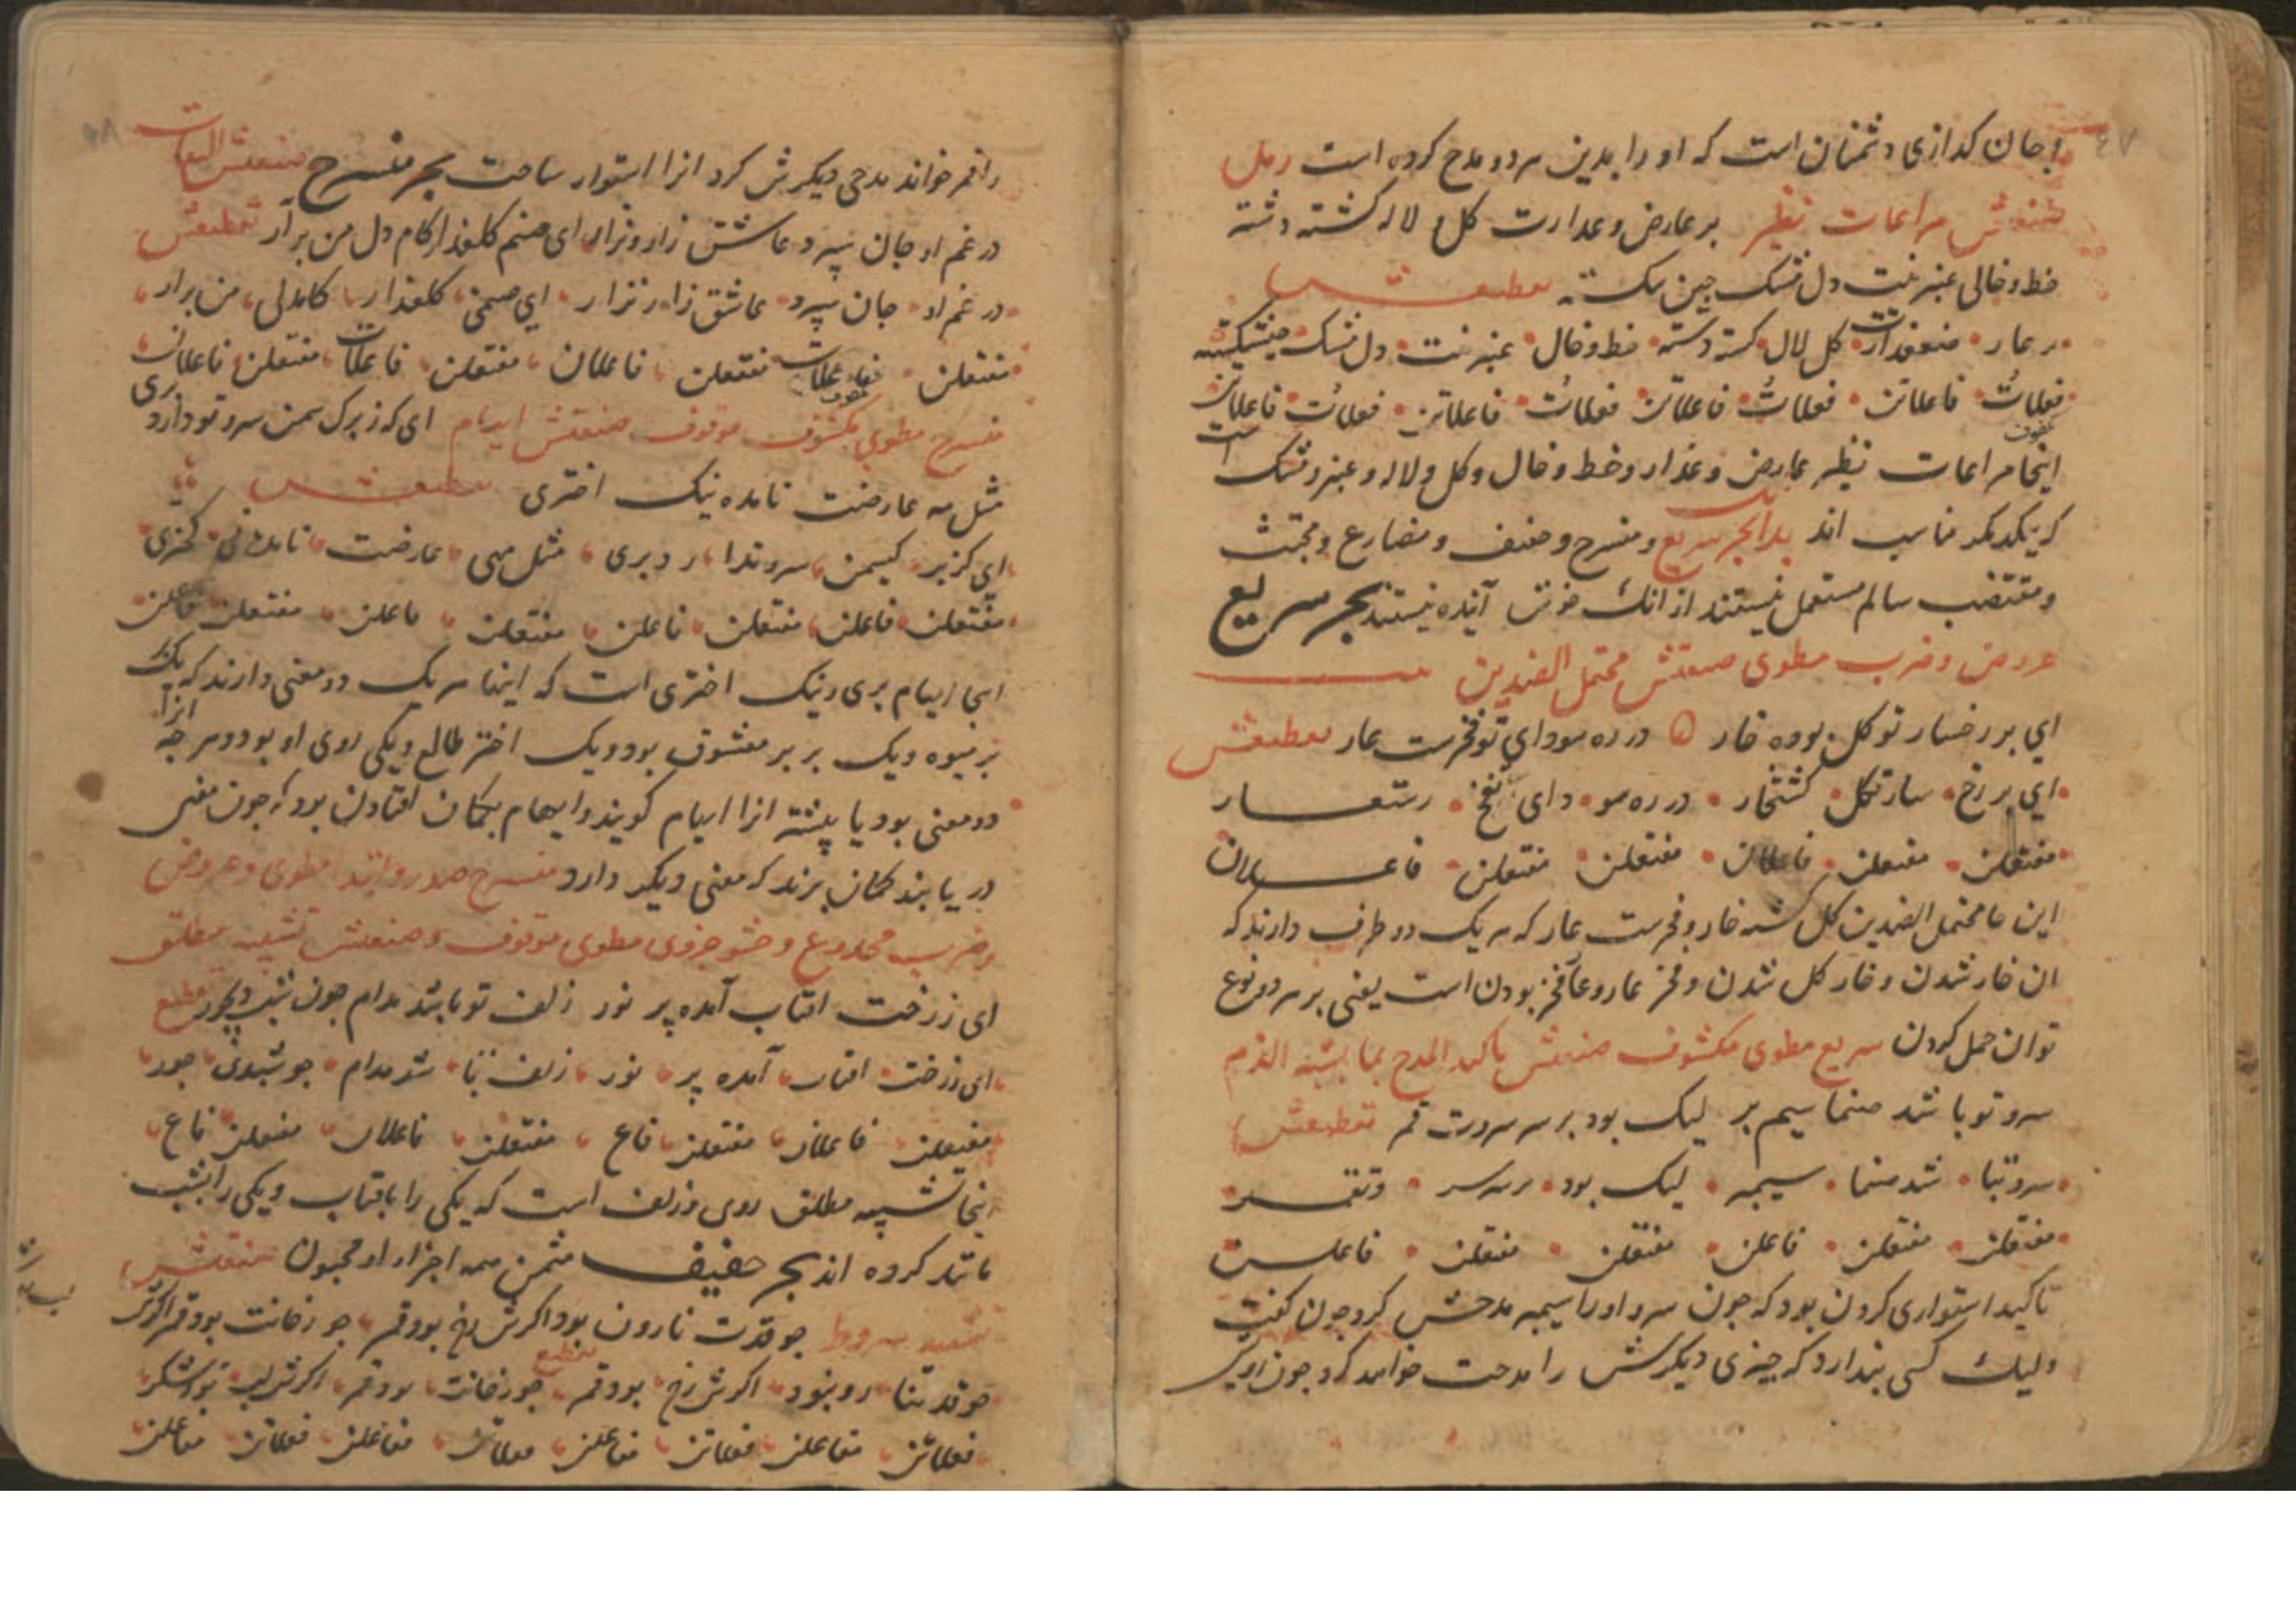 و جان کدازی دشمنان است که او را بدین هر دو مدح کرده است رمل
صنعتش مراعات نظیر بر عارض و عذارت کل و لاله کشته دسته
خط و خالی عنبرینت دل مشک چین شکسته تقطیعش
بر عار کل لال کشته دسته خط و خال عنبرینت دل مشک
فعلات فاعلاتن فعلات فاعلاتن فعلات فاعلاتن فعلات فاعلاتن
اینجا مراعات نظیر عارض و عذار و خط و خال و کل و لاله و عنبر و مشک است
که یکدیکر مناسب اند بدانکه بحر سریع و منسرح و خفیف و مضارع و مجتث
و مقتضب سالم مستعمل نیستند از انک خوش آینده نیستند بحر سریع
عروض و ضرب مطوی صنعتش محتمل الضدین
ای بر رخسار تو کل بوده خار در ره سودای تو فخرست عار تقطیعش
ای بر رخ سار تکل در ره سو دای تفخ رستعار
مفتعلن مفتعلن فاعلان مفتعلن مفتعلن فاعلان
این جا محتمل الضدین کل کشته خار و فخرست عار که هر یک دو طرف دارند که
ان خار شدن و خار کل شدن و فخر عار و عار فخر بودن است یعنی بر هر دو نوع
توان حمل کردن سریع مطوی مکشوف صنعتش تاکید المدح بما یشبه الذم
سرو تو باشد صنما سیم بر لیک بود بر سر سروت قمر تقطیعش
سرو تبا شد صنما سیمبر لیک بود بر سر سر وتقمر
مفتعلن مفتعلن فاعلن مفتعلن مفتعلن فاعلن
تاکید استواری کردن بود که چون سرو او را سیمبر مدحش کرد چون کفت
ولیک کسی پندارد که چیزی دیکرش را مدحت خواهد کرد چون
را قمر خواند مدحی دیکرش کرد انرا استوار ساخت بحر منسرح صنعتش التفات
در غم او جان سپرد عاشق زار و نزار ای صنم کلعذار کام دل من برآر تقطیعش
در غم او جان سپرد عاشق زا رنزار ای صنمی کلعذار کامدلی من برار
مفتعلن فاعلات مفتعلن فاعلان مفتعلن فاعلات مفتعلن فاعلان
منسرح مطوی مکشوف موقوف صنعتش ایهام ای که ز برک سمن سرو تو دارد بری
مثل مه عارضت نامده نیک اختری تقطیعش
ای کزبر کیسمن سروتدا رد بری مثل مهی عارضت نامدنی کختری
مفتعلن فاعلن مفتعلن فاعلن مفتعلن فاعلن مفتعلن فاعلن
اینجا ایهام بری و نیک اختری است که اینها هر یک دو معنی دارند که یک بر
بر میوه و یک بر بر معشوق بود و یک اختر طالع و یکی روی او بود و هر چه انرا
دو معنی بود یا بیشتر انرا ایهام کویند و ایهام بکمان افتادن بود که چون معنی
دریابند کمان برند که معنی دیکر دارد منسرح صدر و ابتدا مطوی و عروض
و ضرب مجدوع و حشو جزوی مطوی موقوف و صنعتش تشبیه مطلق
ای ز رخت افتاب آمده پر نور زلف تو باشد مدام چون شب دیجور تقطیع
ای ز رخت افتاب آمده پر نور زلف تبا شد مدام چو شبدی جور
مفتعلن فاعلان مفتعلن فاع مفتعلن فاعلان مفتعلن فاع
اینجا تشبیه مطلق روی و زلف است که یکی را بافتاب و یکی را بشب
مانند کرده اند بحر خفیف مثمن همه اجزاء او مخبون صنعتش
تشبیه مشروط چو قدت نارون بود اکرش رخ بود قمر چو رخانت بود قمر
چو قدتنا رو بنود اکرش رخ بود قمر تقطیع چو رخانت بود قمر اکرش لب
فعلاتن مفاعلن فعلاتن مفاعلن فعلاتن مفاعلن فعلاتن مفاعلن